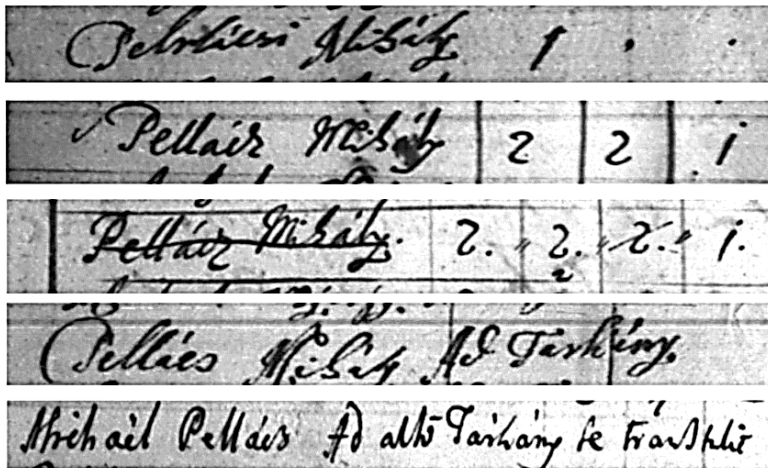 Pelrláczi Mihály 1 . .
Pellácz Mihály 2 2 1
Pellácz Mihály. 2. " 2. " 2. " 1.
Pellács Mihály Ad Tárkány
Michaël Pellács Ad alsó Tárkány se transtulit